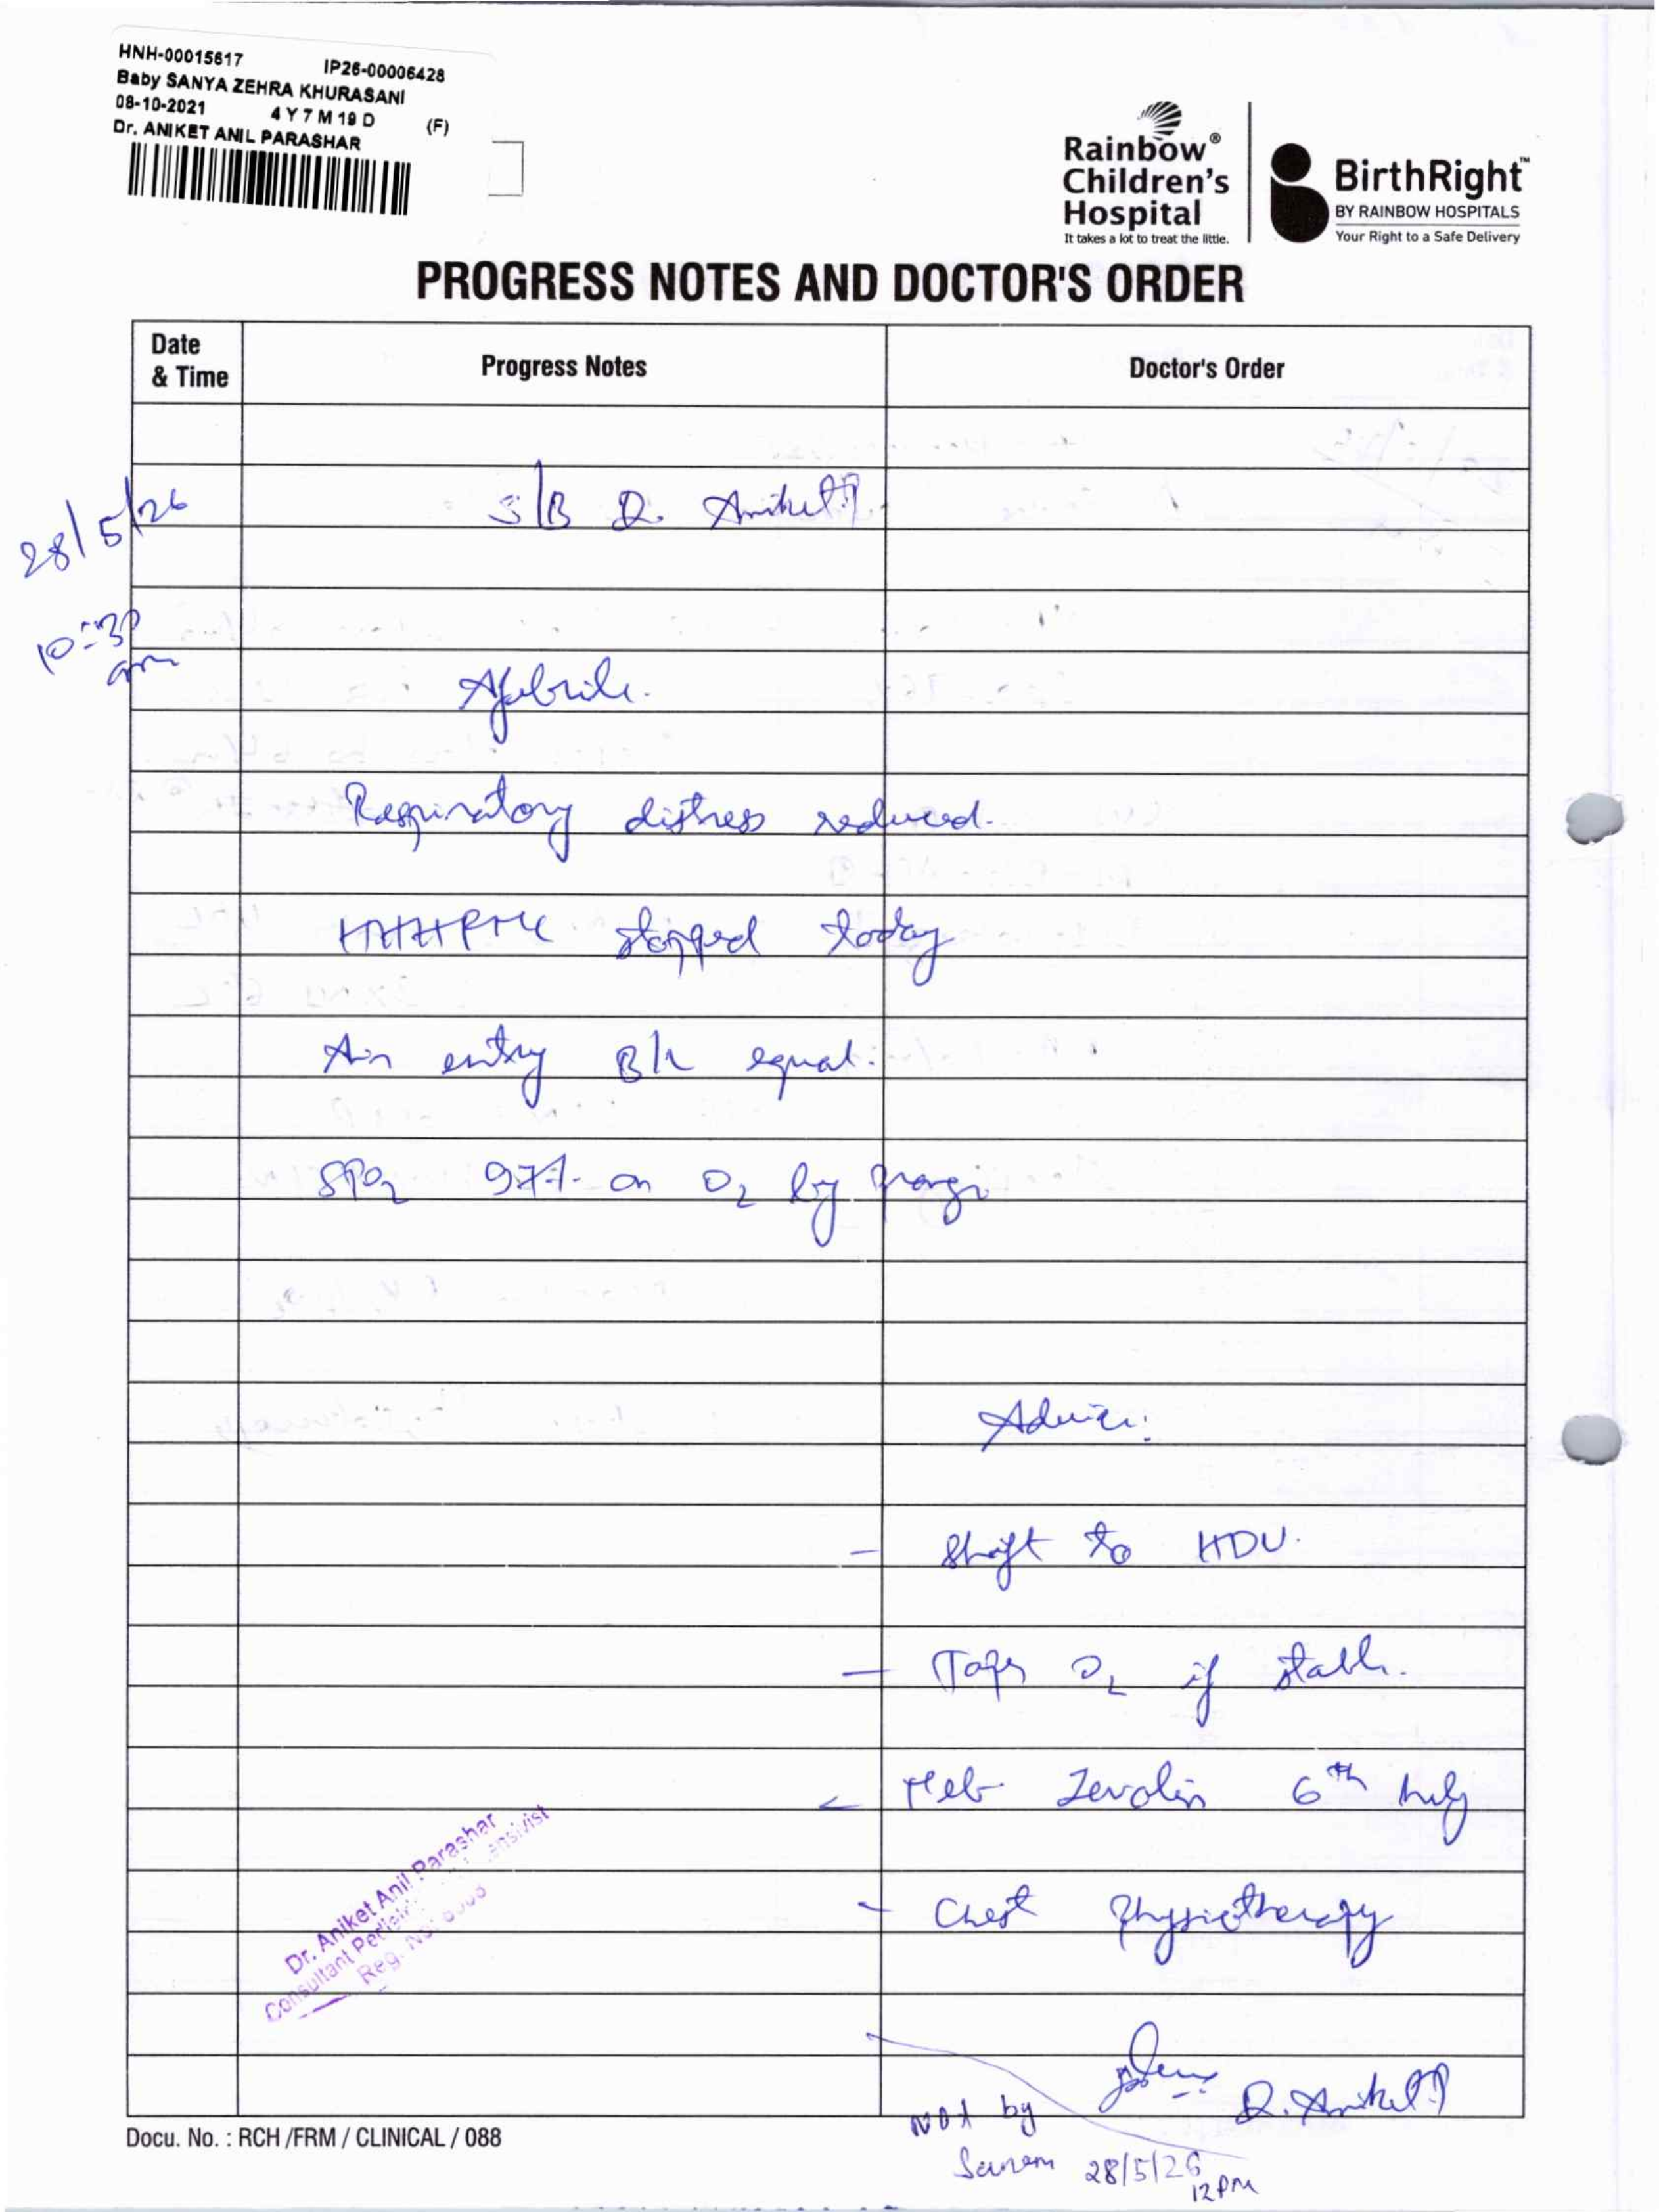 HNH-00015617 IP26-00006428
Baby SANYA ZEHRA KHURASANI
08-10-2021 4 Y 7 M 19 D (F)
Dr. ANIKET ANIL PARASHAR
Rainbow®
Children's
Hospital
It takes a lot to treat the little.
BirthRight™
BY RAINBOW HOSPITALS
Your Right to a Safe Delivery
PROGRESS NOTES AND DOCTOR'S ORDER
Date & Time Progress Notes Doctor's Order
28/5/26 S/B Dr. Aniket P
10:30 am
Afebrile.
Respiratory distress reduced.
stopped today
Air entry B/L equal.
SPO2 97% on O2 by prongs
Advice:
- Shift to HDU.
- Taper O2 if stable.
- Neb 6th hrly
- Chest Physiotherapy
Dr. Aniket Anil Parashar
Consultant
Reg. No.
Dr. Aniket P
by
28/5/26
12 PM
Docu. No. : RCH /FRM / CLINICAL / 088